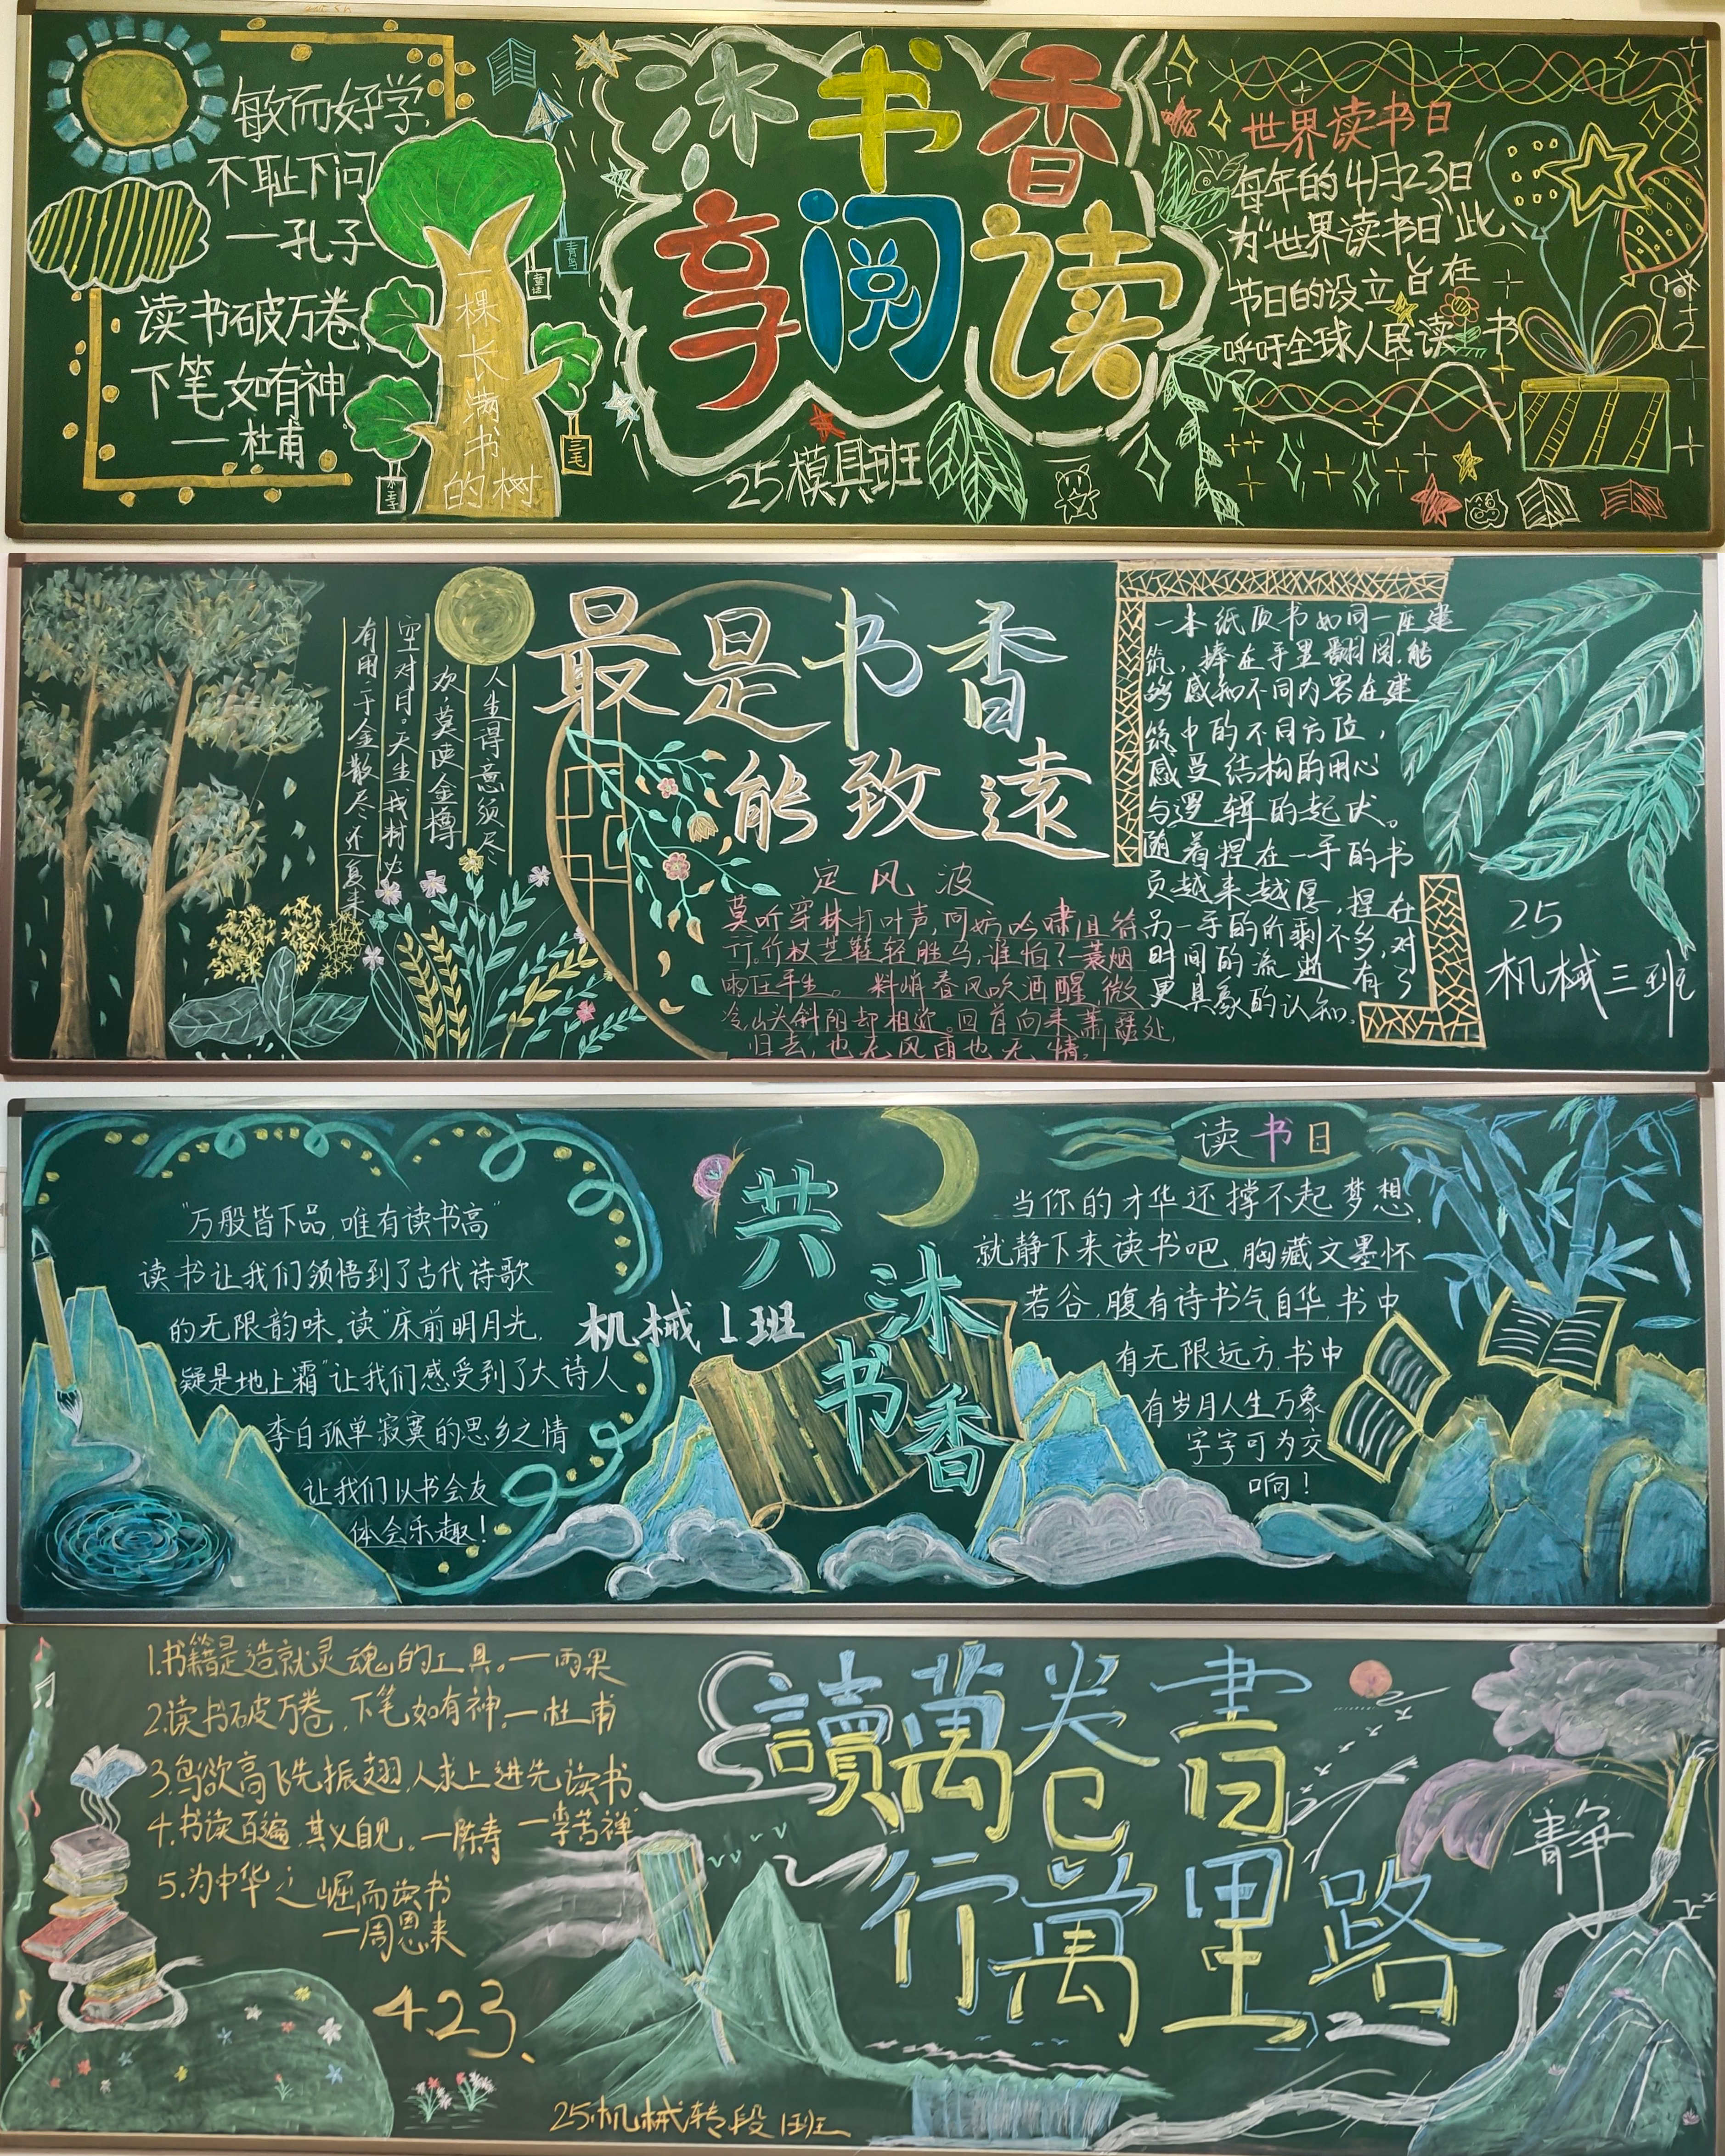 敏而好学,
不耻下问
一孔子
读书破万卷,
下笔如有神
一杜甫
一棵长满书的树
青鸟
童话
三毛
沐书香
享阅读
25模具班
世界读书日
每年的4月23日
为“世界读书日”此
节日的设立旨在
呼吁全球人民读书
人生得意须尽
欢,莫使金樽
空对月。天生我材必
有用千金散尽还复来
最是书香
能致遠
定风波
莫听穿林打叶声,何妨吟啸且徐
行。竹杖芒鞋轻胜马,谁怕?一蓑烟
雨任平生。料峭春风吹酒醒,微
冷,山头斜阳却相迎。回首向来萧瑟处,
归去,也无风雨也无情。
一本纸质书如同一座建
筑,捧在手里翻阅,能
够感知不同内容在建
筑中的不同方位,
感受结构的用心
与逻辑的起伏。
随着捏在一手的书
页越来越厚,捏在
另一手的所剩不多,对
时间的流逝有了
更具象的认知。
25
机械三班
“万般皆下品,唯有读书高”
读书让我们领悟到了古代诗歌
的无限韵味。读“床前明月光,
疑是地上霜”让我们感受到了大诗人
李白孤单寂寞的思乡之情
让我们以书会友
体会乐趣!
机械1班
共
沐
书
香
读书日
当你的才华还撑不起梦想,
就静下来读书吧,胸藏文墨怀
若谷,腹有诗书气自华,书中
有无限远方,书中
有岁月人生万象
字字可为交
响!
1.书籍是造就灵魂的工具。一雨果
2.读书破万卷,下笔如有神,一杜甫
3.鸟欲高飞先振翅,人求上进先读书
一李苦禅
4.书读百遍,其义自见。一陈寿
5.为中华之崛而读书
一周恩来
4.23、
讀萬卷書
行萬里路
静
25机械转段1班